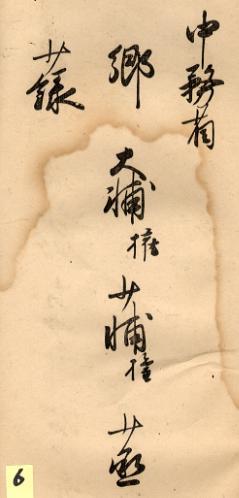 中務省
卿 大輔權 少輔權 少丞
少録
6